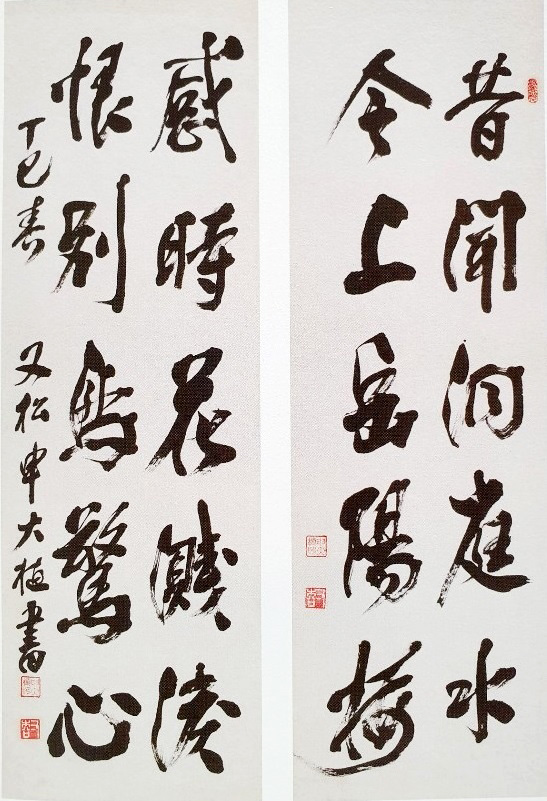 昔聞洞庭水
今上岳陽樓
感時花濺淚
恨別鳥驚心
丁巳春
又松申大植書